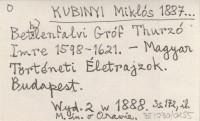 KUBINYI Miklós 1837...
Betlenfalvi Gróf Thurzó
Imre 1598-1621. – Magyar
Történeti Életrajzok.
Budapest.
Wyd. 2 w 1888. Ss 172, il
M. in. o Orawie.